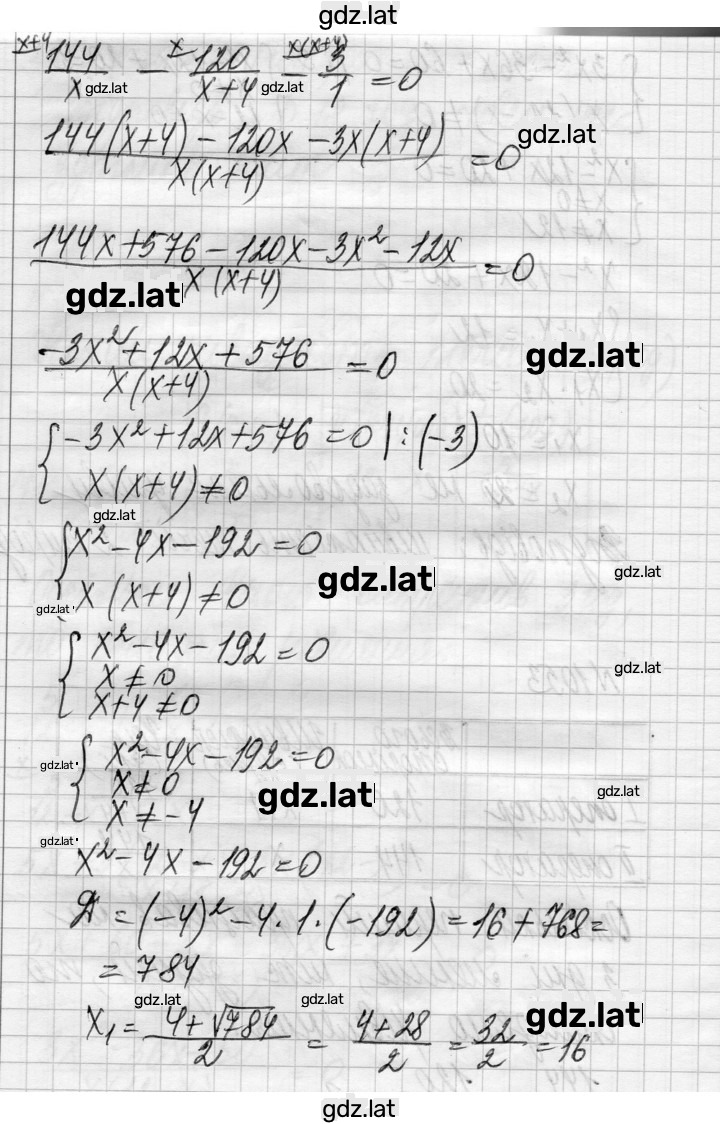 gdz.lat
x+4 x x(x+4)
144/x - 120/(x+4) - 3/1 = 0
gdz.lat gdz.lat
(144(x+4) - 120x - 3x(x+4))/(x(x+4)) = 0
gdz.lat
(144x + 576 - 120x - 3x² - 12x)/(x(x+4)) = 0
gdz.lat
(-3x² + 12x + 576)/(x(x+4)) = 0
gdz.lat
{ -3x² + 12x + 576 = 0 | : (-3)
x(x+4) ≠ 0
gdz.lat
{ x² - 4x - 192 = 0
gdz.lat gdz.lat
gdz.lat x(x+4) ≠ 0
{ x² - 4x - 192 = 0
x ≠ 0 gdz.lat
x+4 ≠ 0
gdz.lat { x² - 4x - 192 = 0
x ≠ 0 gdz.lat gdz.lat
x ≠ -4
gdz.lat
x² - 4x - 192 = 0
Д = (-4)² - 4·1·(-192) = 16 + 768 =
= 784
gdz.lat gdz.lat gdz.lat
x₁ = (4+√784)/2 = (4+28)/2 = 32/2 = 16
gdz.lat